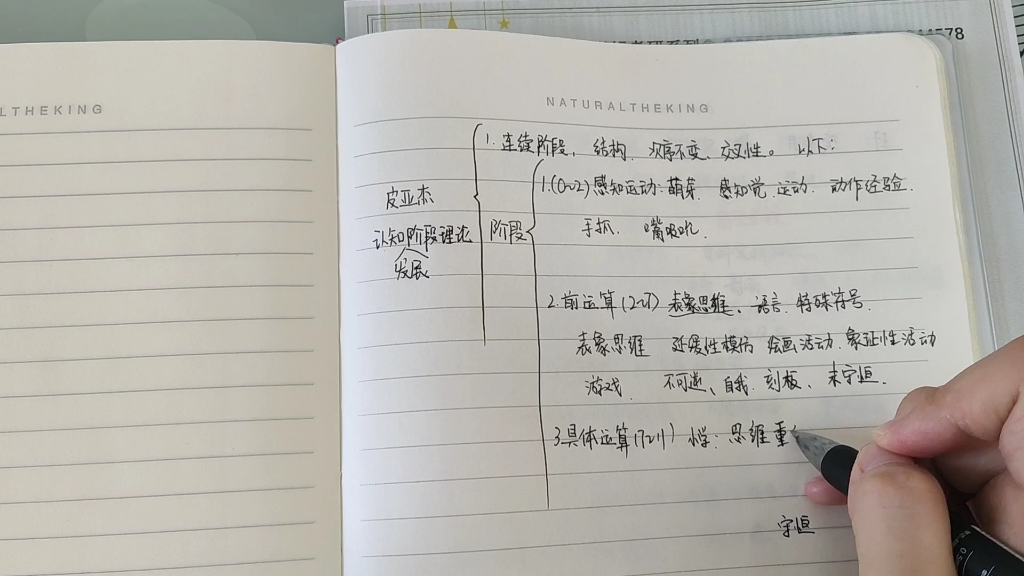 4578
LTHEKING
NATURALTHEKING
1. 连续阶段，结构、次序不变、交叉性。以下：
皮亚杰
认知阶段理论
发展
阶段
1.(0~2) 感知运动：萌芽. 感知觉.运动. 动作经验.
手抓. 嘴吸吮.
2.前运算(2~7) 表象思维、语言.特殊符号.
表象思维 延缓性模仿 绘画活动. 象征性活动
游戏. 不可逆、自我.刻板、未守恒.
3具体运算(7~11) 小学：思维重
守恒